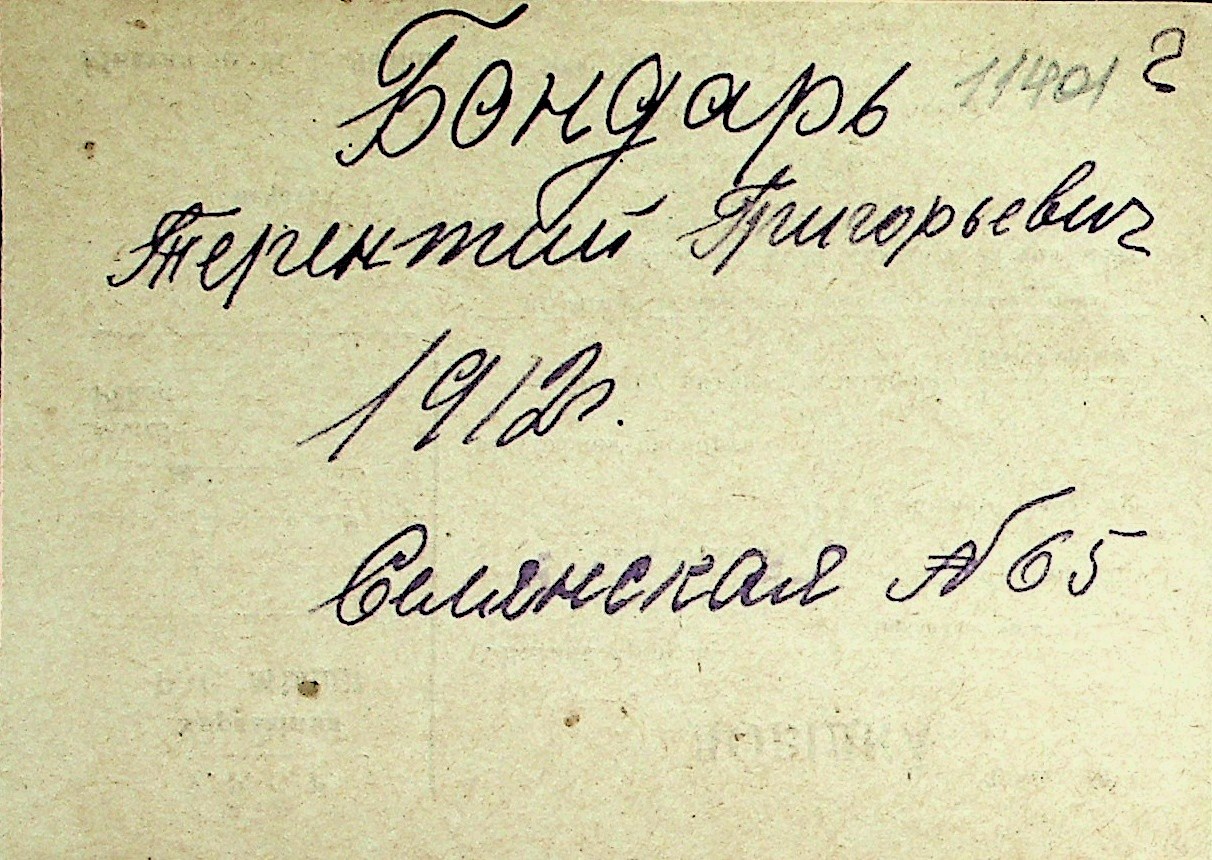 Бондарь 11401 2
Терентий Григорьевич
1912г.
Селянская № 65